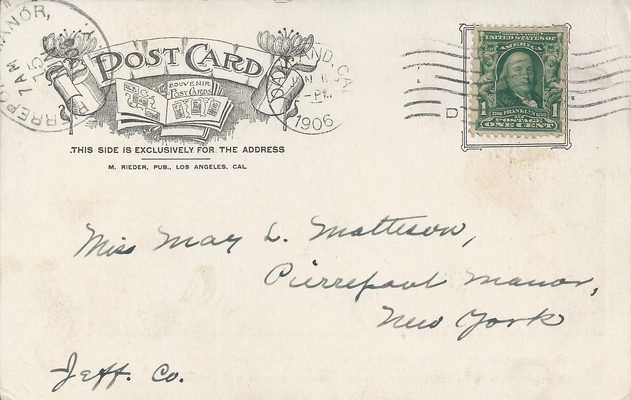 MANOR,
7 AM
POST CARD
SOUVENIR
POST CARDS
OAKLAND, CAL.
1906
THIS SIDE IS EXCLUSIVELY FOR THE ADDRESS
M. RIEDER, PUB., LOS ANGELES, CAL.
SERIES 1902
UNITED STATES OF
AMERICA
1 1
FRANKLIN
POSTAGE
ONE CENT
D
Miss May L. Matteson,
Pierrepont Manor,
New York
Jeff. Co.